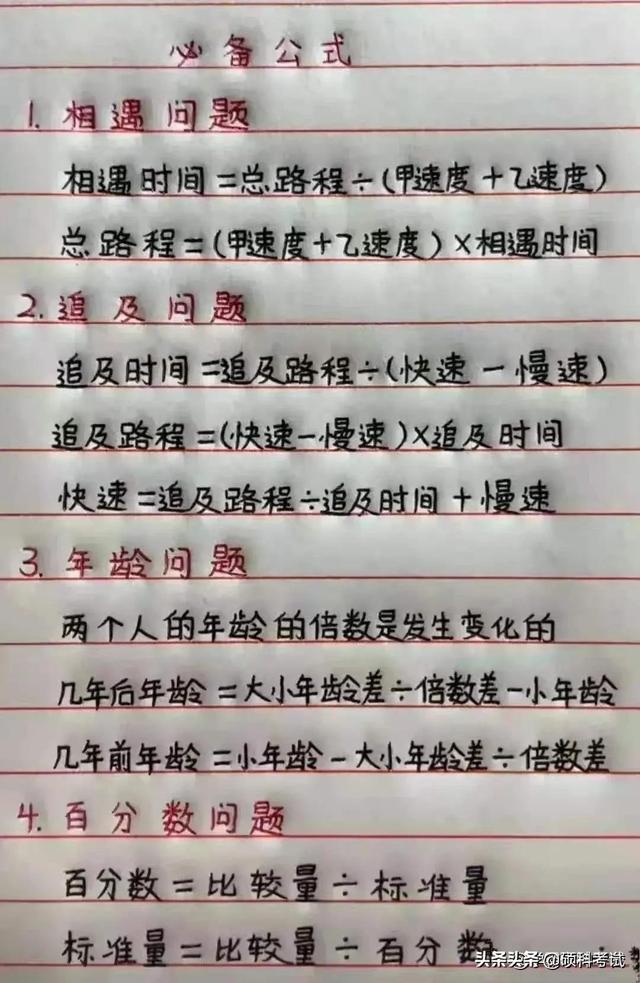 必备公式
1. 相遇问题
相遇时间=总路程÷(甲速度+乙速度)
总路程=(甲速度+乙速度)×相遇时间
2. 追及问题
追及时间=追及路程÷(快速-慢速)
追及路程=(快速-慢速)×追及时间
快速=追及路程÷追及时间+慢速
3. 年龄问题
两个人的年龄的倍数是发生变化的
几年后年龄=大小年龄差÷倍数差-小年龄
几年前年龄=小年龄-大小年龄差÷倍数差
4. 百分数问题
百分数=比较量÷标准量
标准量=比较量÷百分数
头条头条@硕科考试